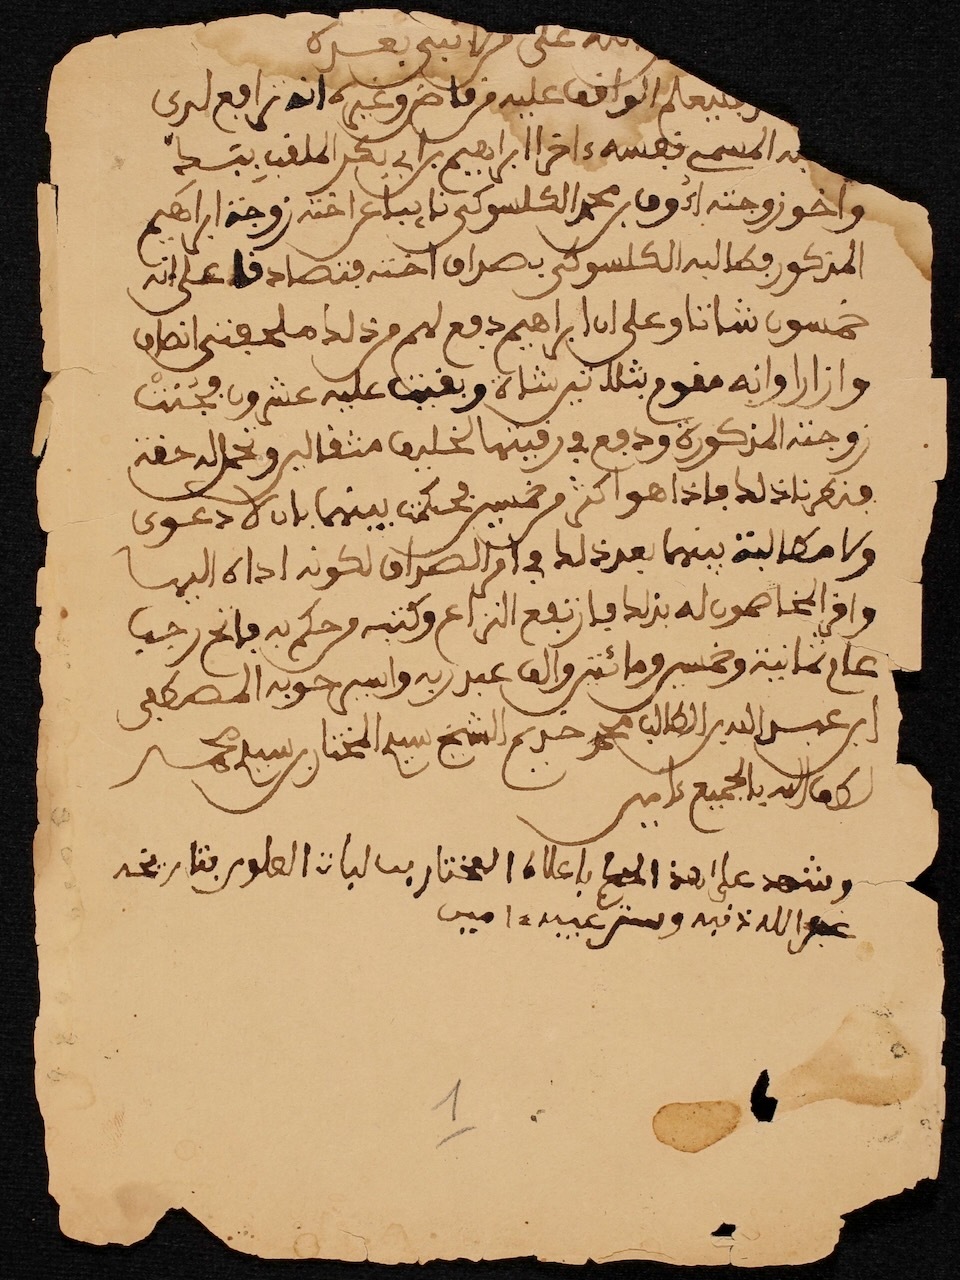 الله على من لا نبي بعده
فليعلم الواقف عليه من قاض وغيره انه ترافع لدى
المسمي نفسه ءاخرا ابراهيم بن ابي بكر الملقب
واخو زوجته بن محمد الكلسوكي نايبا عن اخته زوجة ابراهيم
المذكور فطالبه الكلسوكي بصداق اخته فتصادقا على انه
خمسون شاتا وعلى ان ابراهيم دفع لهم من ذلك ملحفتي انصاف
وازارا وانه مقوم بثلاثين شاة وبقيت عليه عشرون فجئت
زوجته المذكورة ودفع في رقيتها مثقالين وتحمل له حقه
فنظرنا ذلك فاذا هو اكثر من خمسين فحكمت بينهما بان لا دعوى
ولا مطالبة بينهما بعد ذلك في امر الصداق لكونه اداه اليها
واقر المخاصمون له بذلك فارتفع النزاع وكتبه من حكم به فاتح رجب
عام ثمانية وخمسين ومائتين والف عبد ربه واسير حوبه المصطفى
ابن عبد الله بن الطالب محمد خديم الشيخ سيد المختار بن سيد محمد
كان الله بالجميع ءامين
وشهد على هذا باعلاه المختار بن العلوي بتاريخه
غفر الله ذنبه وستر عيبه ءامين
1